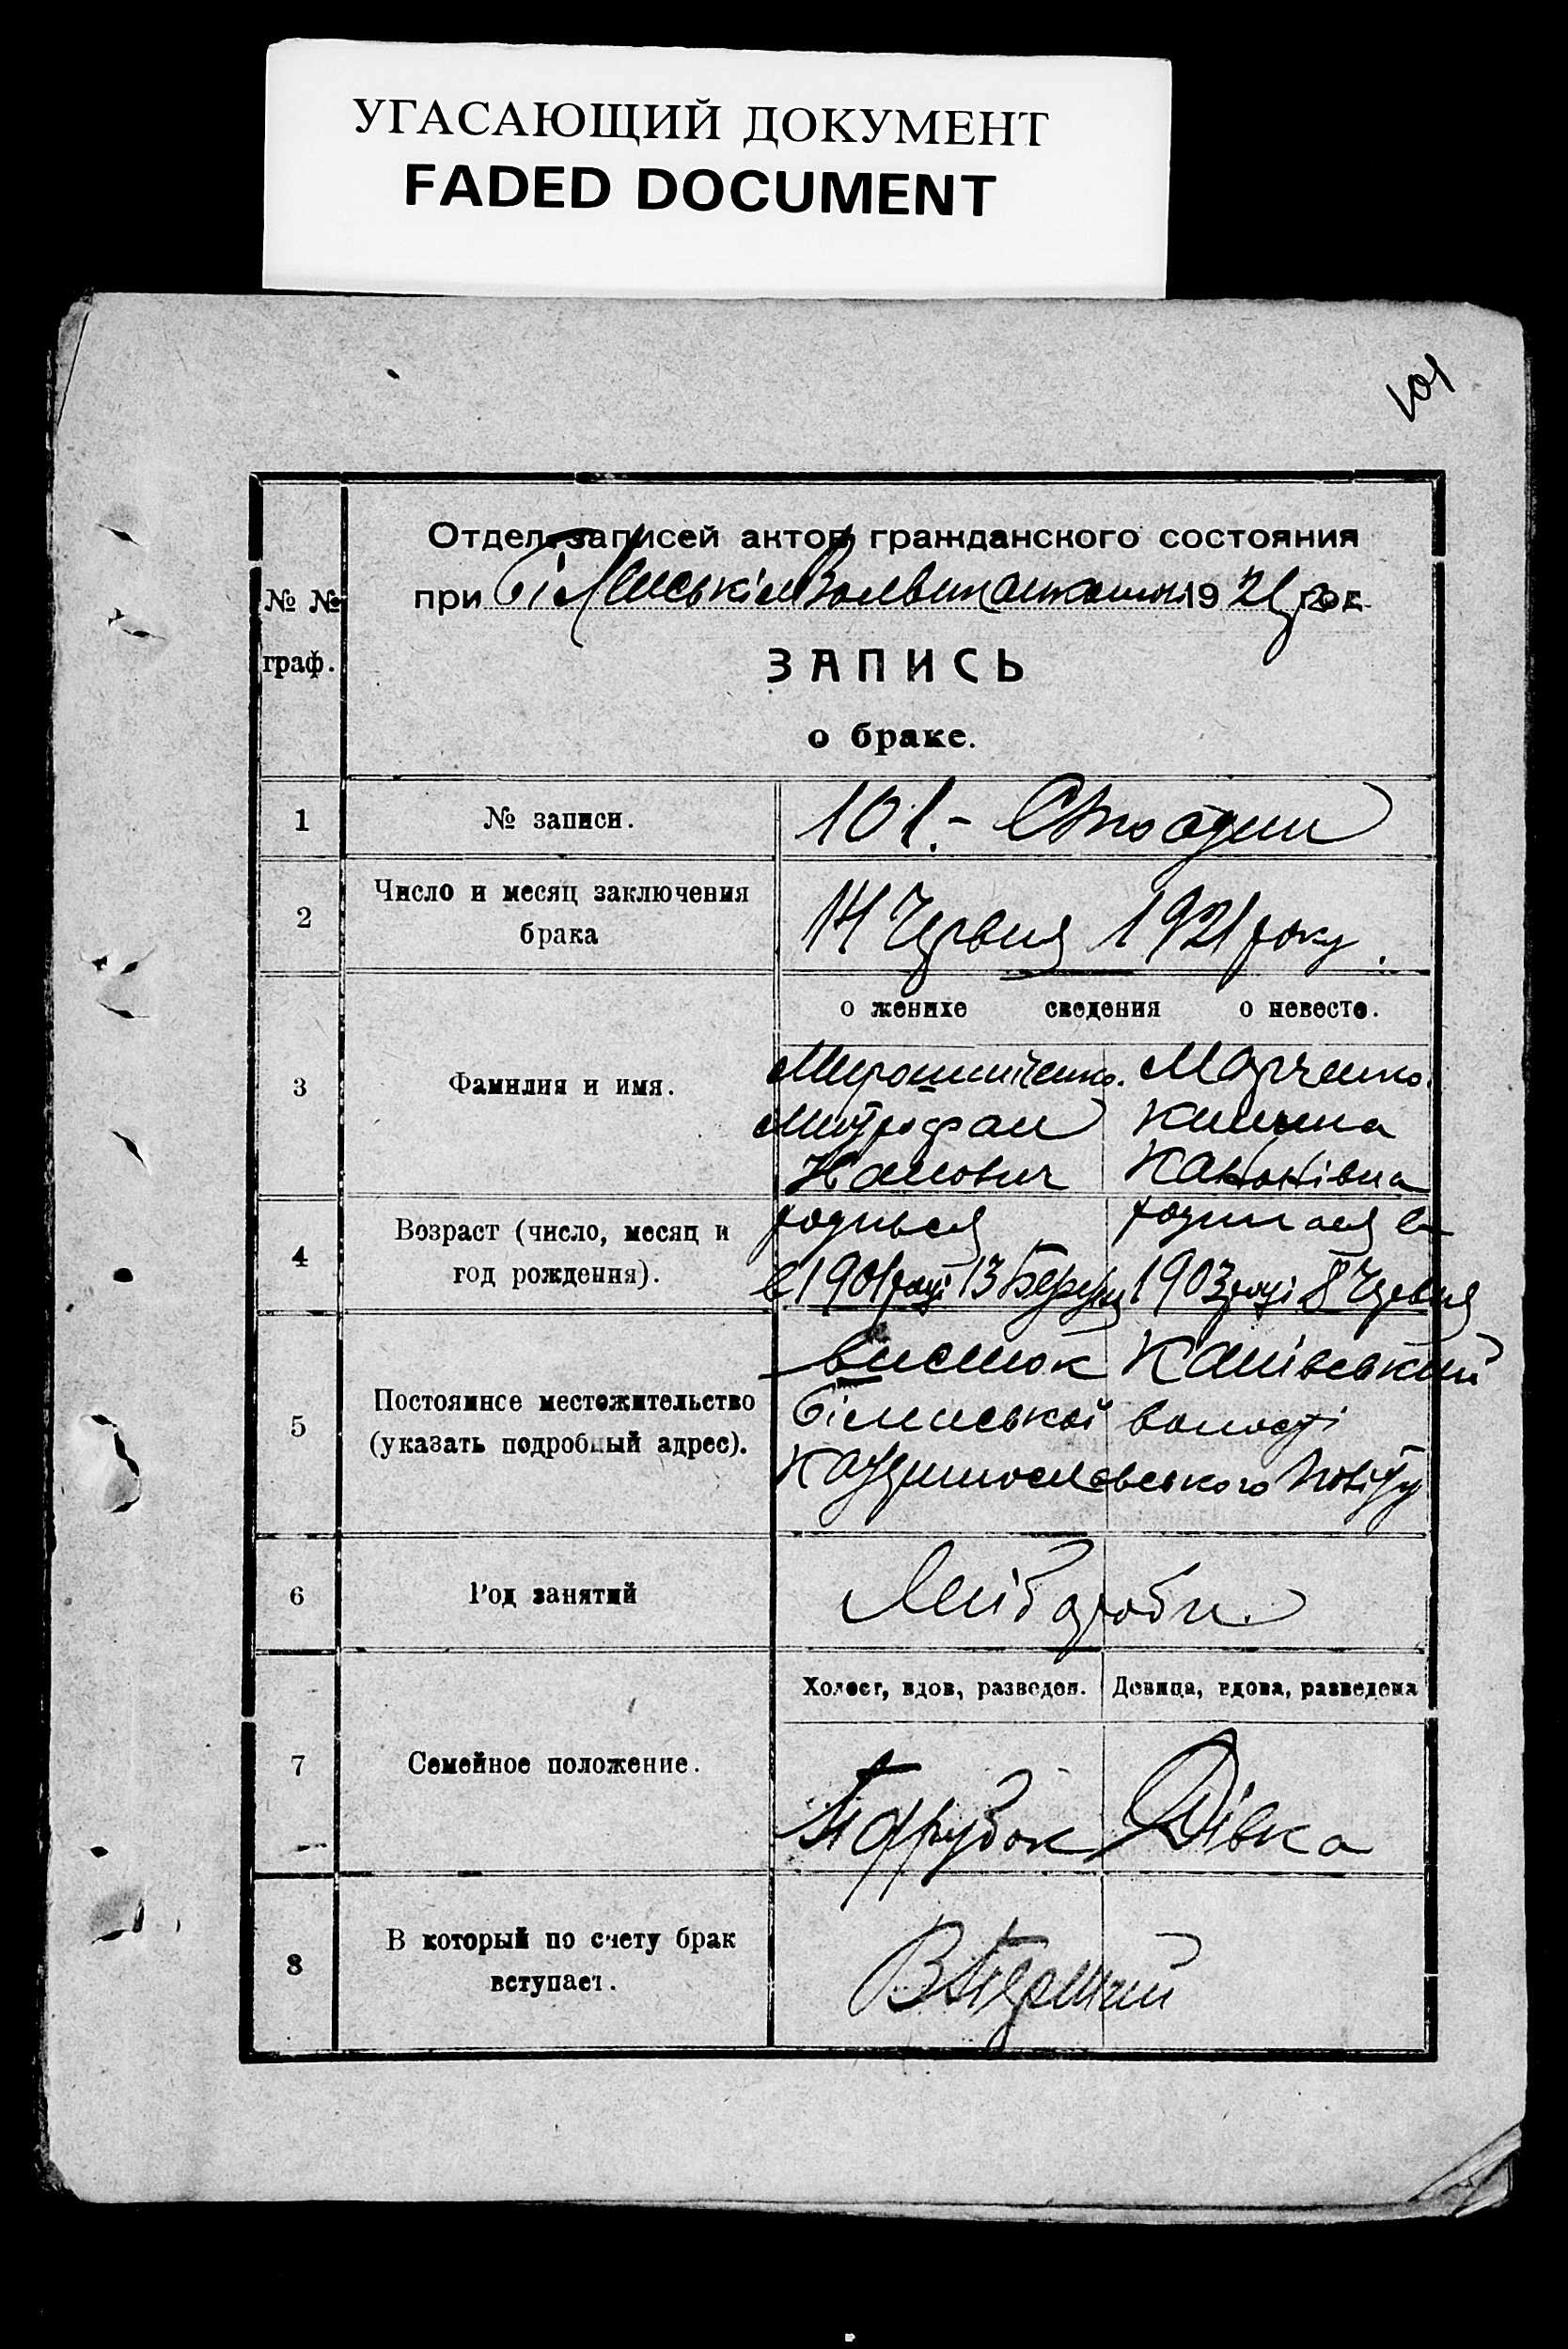 УГАСАЮЩИЙ ДОКУМЕНТ
FADED DOCUMENT
101
Отдел записей актов гражданского состояния
№ № при 1921 год
граф.
ЗАПИСЬ
о браке.
1 № записи. 101.- Сто один
2 Число и месяц заключения
брака
14 Червня 1921 року.
о женихе сведения о невесте.
3 Фамилия и имя.
Мирошниченко. Марченко.
Митрофан
4 Возраст (число, месяц и
год рождения).
родився родилася в
в 1901 році 13 1903 році 8 Червня
5 Постоянное местожительство
(указать подробный адрес).
висілок Канівський
волості
повіту
6 Род занятий
Хліборобы
Холост, вдов, разведен. Девица, вдова, разведена
7 Семейное положение.
Парубок Дівка
8 В который по счету брак
вступает.
В перший